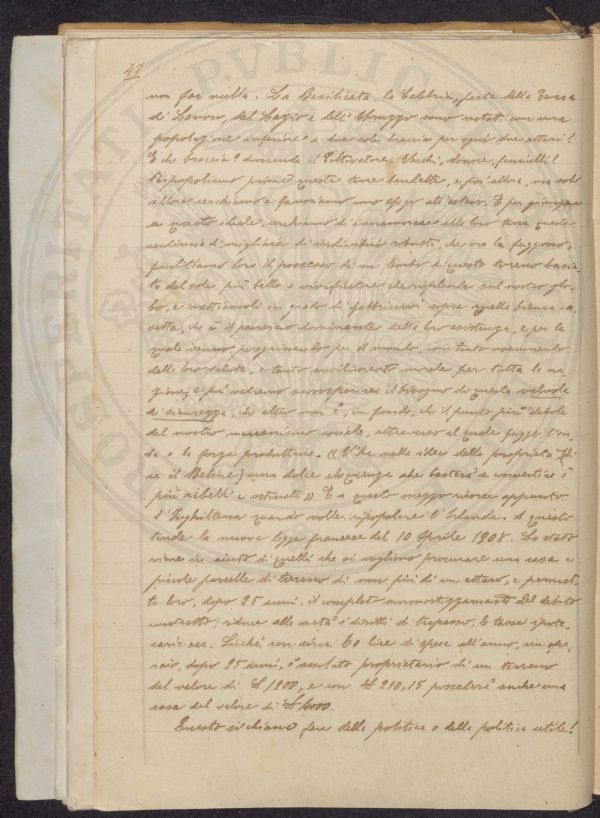 47
non far nulla. La Basilicata, la Calabria, parte della Terra
di Lavoro, del Lazio e dell'Abruzzo sono restati con una
popolazione inferiore a due sole braccia per ogni due ettari!
E che braccia? domanda il Coltivatore, Vecchi, donne, fanciulli!
Ripopoliamo prima queste terre benedette, e poi allora, ma solo
allora cerchiamo e favoriamo uno sfogo all'estero. E per giungere
a questo ideale, cerchiamo di innamorare alle loro terre queste
centinaia di migliaia di robusti, che ora la fuggono,
facilitiamo loro il possesso di un lembo di questo terreno bacia-
to dal sole più bello e vivificatore che risplenda sul nostro glo-
bo, e mettiamoli in grado di fabbricarvi sopra quella bianca ca-
setta, che è il pensiero dominante della loro esistenza, e per la
quale vanno peregrinando per il mondo, con tanto nocumento
della loro salute, e tanto avvilimento morale per tutta la na-
zione, e poi vedremo scomparire il bisogno di questa valvola
di sicurezza, che altro non è, in fondo, che il punto più debole
del nostro meccanismo sociale, attraverso al quale fugge l'on-
da e la forza produttrice. «V'ha nella idea della proprietà (di-
ce il Meline) una dolce eloquenza che basterà a convertire i
più ribelli e ostinati» E a questo mezzo ricorse appunto
l'Inghilterra quando volle ripopolare l'Irlanda. A questo
tende la nuova legge francese del 10 Aprile 1908. Lo stato
viene in aiuto di quelli che si vogliono procurare una casa e
piccole parcelle di terreno di non più di un ettaro, e permet-
te loro, dopo 25 anni, il completo ammortizzamento del debito
contratto; riduce alla metà i diritti di trapasso, le tasse ipote-
carie ecc. Sicché con circa 60 lire di spesa all'anno, un ope-
raio, dopo 25 anni, è assoluto proprietario di un terreno
del valore di £ 1200, e con £ 210,15 possederà anche una
casa del valore di £ 4000.
Questo si chiama fare della politica e della politica utile!